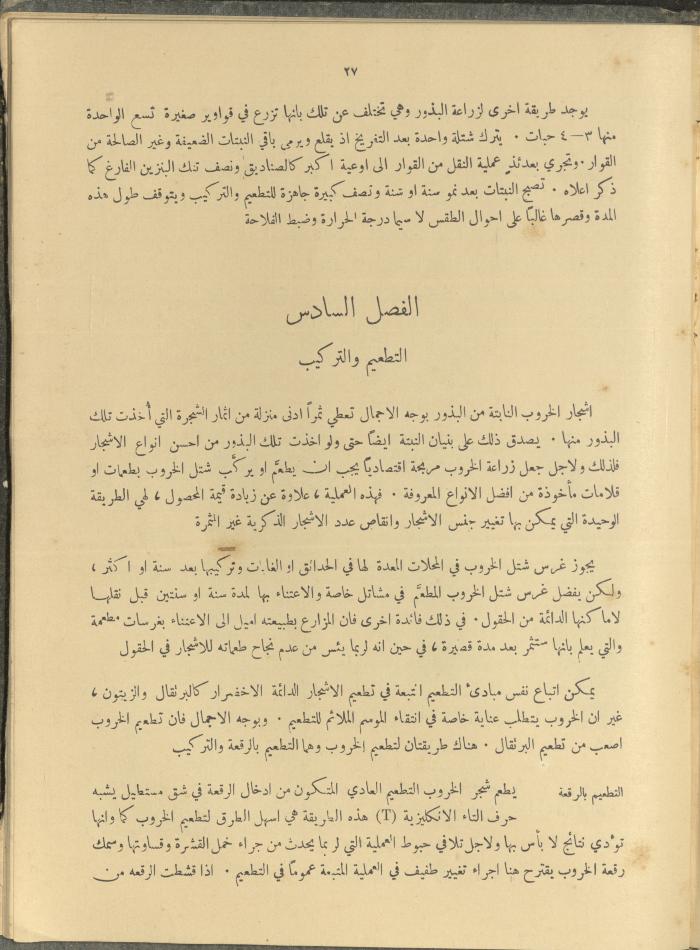 ٢٧
يوجد طريقة اخرى لزراعة البذور وهي تختلف عن تلك بانها تزرع في قواوير صغيرة تسع الواحدة
منها ٣—٤ حبات . يترك شتلة واحدة بعد التفريخ اذ يقلع ويرمى باقي النبتات الضعيفة وغير الصالحة من
القوار . وتجري بعدئذٍ عملية النقل من القوار الى اوعية اكبر كالصناديق ونصف تنك البنزين الفارغ كما
ذكر اعلاه . تصبح النبتات بعد نمو سنة او سنة ونصف كبيرة جاهزة للتطعيم والتركيب ويتوقف طول هذه
المدة وقصرها غالبًا على احوال الطقس لا سيما درجة الحرارة وضبط الفلاحة
الفصل السادس
التطعيم والتركيب
اشجار الخروب النابتة من البذور بوجه الاجمال تعطي ثمراً ادنى منزلة من اثمار الشجرة التي أُخذت تلك
البذور منها . يصدق ذلك على بنيان النبتة ايضًا حتى ولو اخذت تلك البذور من احسن انواع الاشجار
فلذلك ولاجل جعل زراعة الخروب مربحة اقتصاديًا يجب ان يطعَّم او يركَّب شتل الخروب بطعمات او
قلامات مأخوذة من افضل الانواع المعروفة . فهذه العملية ، علاوة عن زيادة قيمة المحصول ، لهي الطريقة
الوحيدة التي يمكن بها تغيير جنس الاشجار وانقاص عدد الاشجار الذكرية غير المثمرة
يجوز غرس شتل الخروب في المحلات المعدة لها في الحدائق او الغابات وتركيبها بعد سنة او اكثر ،
ولكن يفضل غرس شتل الخروب المطعَّم في مشاتل خاصة والاعتناء بها لمدة سنة او سنتين قبل نقلها
لاماكنها الدائمة من الحقول . في ذلك فائدة اخرى فان المزارع بطبيعته اميل الى الاعتناء بغرسات مطعمة
والتي يعلم بانها ستثمر بعد مدة قصيرة ، في حين انه لربما يئس من عدم نجاح طعماته للاشجار في الحقول
يمكن اتباع نفس مبادئ التطعيم المتبعة في تطعيم الاشجار الدائمة الاخضرار كالبرتقال والزيتون ،
غير ان الخروب يتطلب عناية خاصة في انتقاء الموسم الملائم للتطعيم . وبوجه الاجمال فان تطعيم الخروب
اصعب من تطعيم البرتقال . هناك طريقتان لتطعيم الخروب وهما التطعيم بالرقعة والتركيب
التطعيم بالرقعة يطعم شجر الخروب التطعيم العادي المتكون من ادخال الرقعة في شق مستطيل يشبه
حرف التاء الانكليزية (T) هذه الطريقة هي اسهل الطرق لتطعيم الخروب كما وانها
تؤدي نتائج لا بأس بها ولاجل تلافي حبوط العملية التي لربما يحدث من جراء خمل القشرة وقساوتها وسمك
رقعة الخروب يقترح هنا اجراء تغيير طفيف في العملية المتبعة عمومًا في التطعيم . اذا قشطت الرقعه من